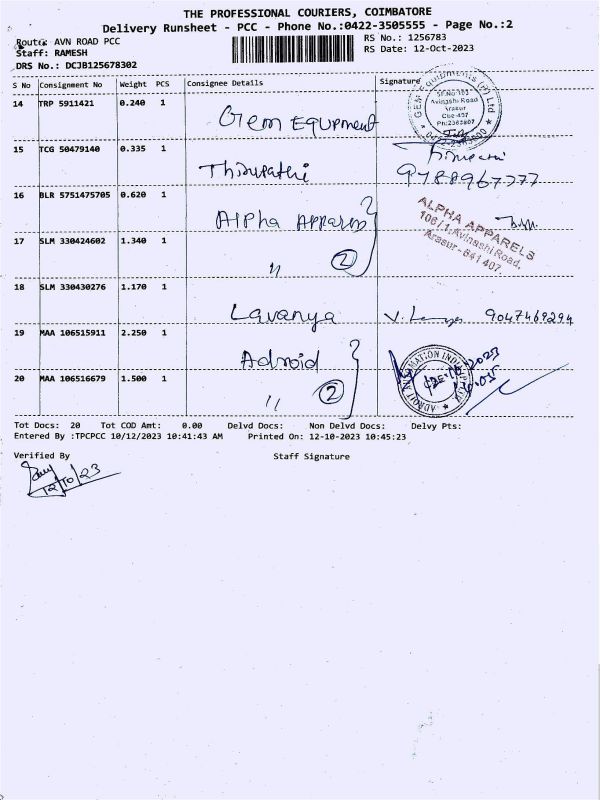 THE PROFESSIONAL COURIERS, COIMBATORE
Delivery Runsheet - PCC - Phone No.:0422-3505555 - Page No.:2
Route: AVN ROAD PCC
RS No.: 1256783
Staff: RAMESH
RS Date: 12-Oct-2023
DRS No.: DCJB125678302
S No Consignment No Weight PCS Consignee Details Signature
14 TRP 5911421 0.240 1 Gem Equpment
GEM Equipments (P) Ltd
SF.No 103
Avinashi Road
Arasur
Cbe-407
15 TCG 50479140 0.335 1 Thirupathi
9788967777
16 BLR 5751475705 0.620 1 Alpha Apparos
ALPHA APPARELS
106/1, Avinashi Road,
Arasur - 641 407
17 SLM 330424602 1.340 1 " 2
18 SLM 330430276 1.170 1 Lavanya V. 9047469294
19 MAA 106515911 2.250 1 Adroid
20 MAA 106516679 1.500 1 " 2
Tot Docs: 20 Tot COD Amt: 0.00 Delvd Docs: Non Delvd Docs: Delvy Pts:
Entered By :TPCPCC 10/12/2023 10:41:43 AM Printed On: 12-10-2023 10:45:23
Verified By Staff Signature
12/10/23